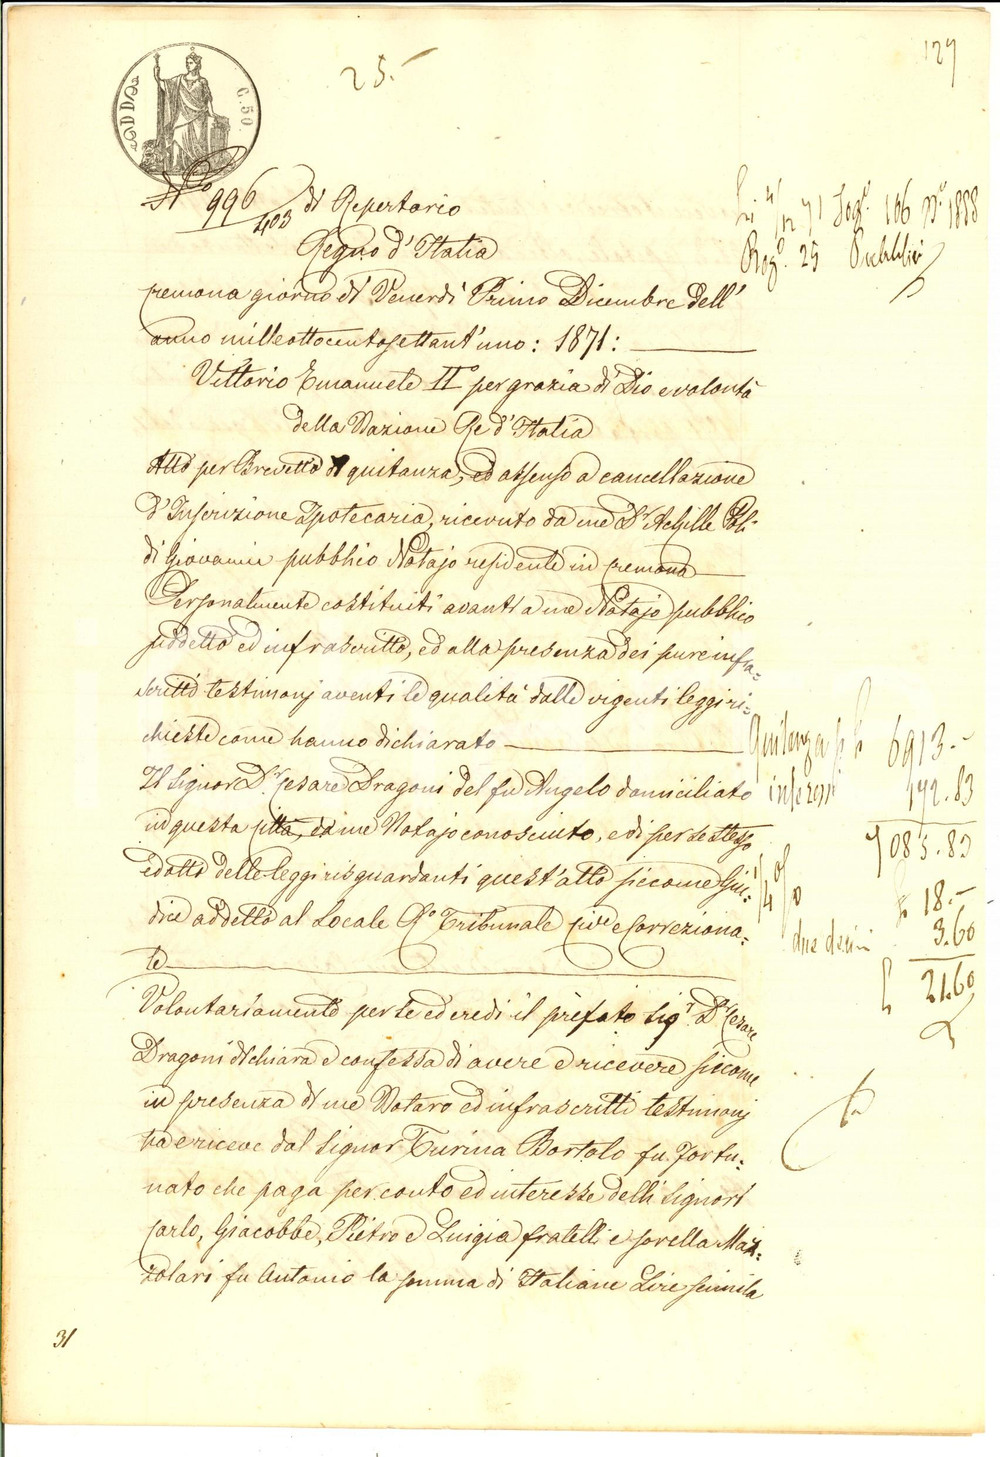 25.-
127
C. 50
N.º 996/403 di Repertorio
Regno d'Italia
Cremona giorno di Venerdì Primo Dicembre dell'
anno mille ottocento settant'uno: 1871:
Vittorio Emanuele IIº per grazia di Dio e volontà
della Nazione Re d'Italia
Atto per Brevetto di quitanza, ed assenso a cancellazione
d'Inscrizione Ipotecaria, ricevuto da me Dr Achille Poli
di Giovanni pubblico Notajo residente in Cremona
Personalmente costituiti avanti a me Notajo pubblico
suddetto ed infrascritto, ed alla presenza dei pure infra=
scritti testimonj aventi le qualità dalle vigenti leggi ri=
chieste come hanno dichiarato
Il Signor Dr. Cesare Dragoni del fu Angelo domiciliato
in questa città, da me Notajo conosciuto, e di per se stesso
edotto delle leggi risguardanti quest'atto siccome Giu=
dice addetto al Locale Rº Tribunale Civile e Correziona=
le
Volontariamente per se ed eredi il prefato Sigr Dr Cesare
Dragoni dichiara e confessa di avere e ricevere siccome
in presenza di me Notaro ed infrascritti testimonj
ha e riceve dal Signor Turina Bortolo fu Fortu=
nato che paga per conto ed interesse delli Signori
Carlo, Giacobbe, Pietro e Luigia fratelli e sorella Maz=
zolari fu Antonio la somma di Italiane Lire seimila
71 Fogº. 106 Nº 1888
Regº. 25 Pubblici
Quitanza p L 6913.-
interessi 172.83
7085.83
1/4 %
18.-
due decimi 3.60
L 21.60
31